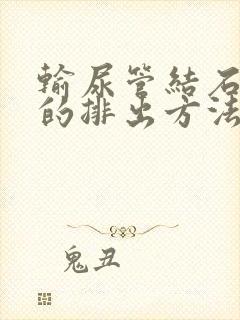 輸尿管結石
的排出方法
鬼丑